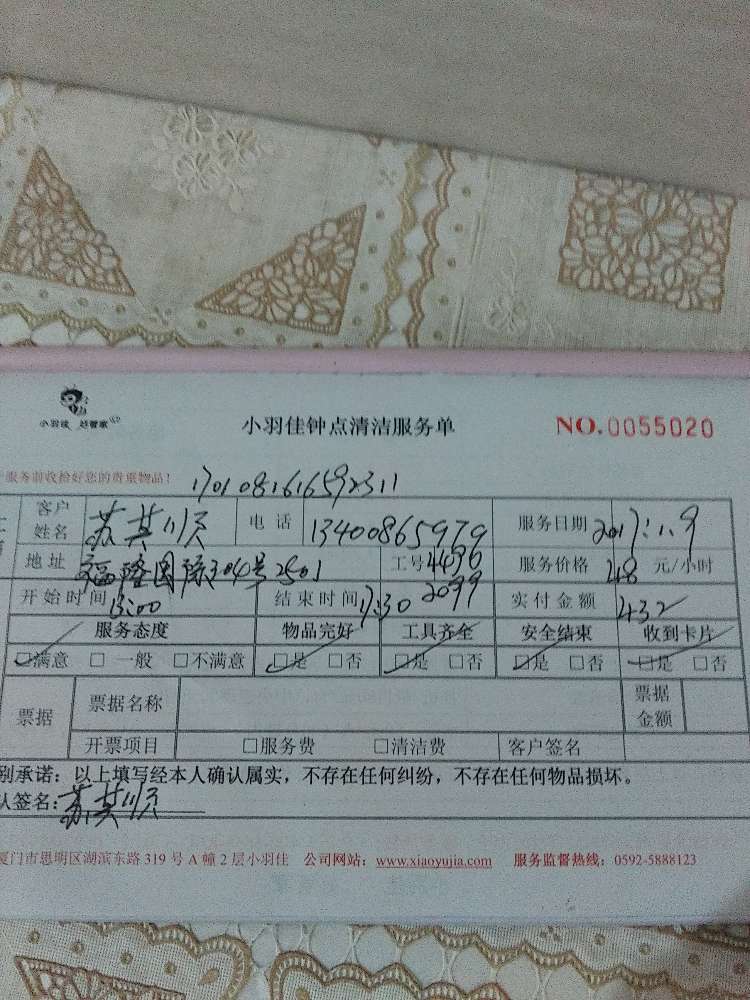 小羽佳 好管家
小羽佳钟点清洁服务单 NO.0055020
服务前收拾好您的贵重物品!
1701081616592311
客户姓名 苏其顺 电话 13400865979 服务日期 2017.1.9
地址 福隆国际304号2501 工号 4496 2099 服务价格 48 元/小时
开始时间 13:00 结束时间 17:30 实付金额 432
服务态度 物品完好 工具齐全 安全结束 收到卡片
☑满意 □一般 □不满意 ☑是 □否 ☑是 □否 ☑是 □否 ☑是 □否
票据 票据名称 票据金额
开票项目 □服务费 □清洁费 客户签名
别承诺:以上填写经本人确认属实,不存在任何纠纷,不存在任何物品损坏。
认签名:苏其顺
厦门市思明区湖滨东路319号A幢2层小羽佳 公司网站:www.xiaoyujia.com 服务监督热线:0592-5888123